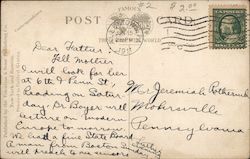 #2
$2.00
POST CARD
Dear Father:
Tell Mother
I will look for her
at 6th & Penn St.
Reading on Satur-
day. Dr Boyer will
lecture on modern
Europe to-morrow.
We had a fine State Board
A man from Boston
will preach to our seniors
Mr Jeremiah Rothermel
Mohrsville
Pennsylvania